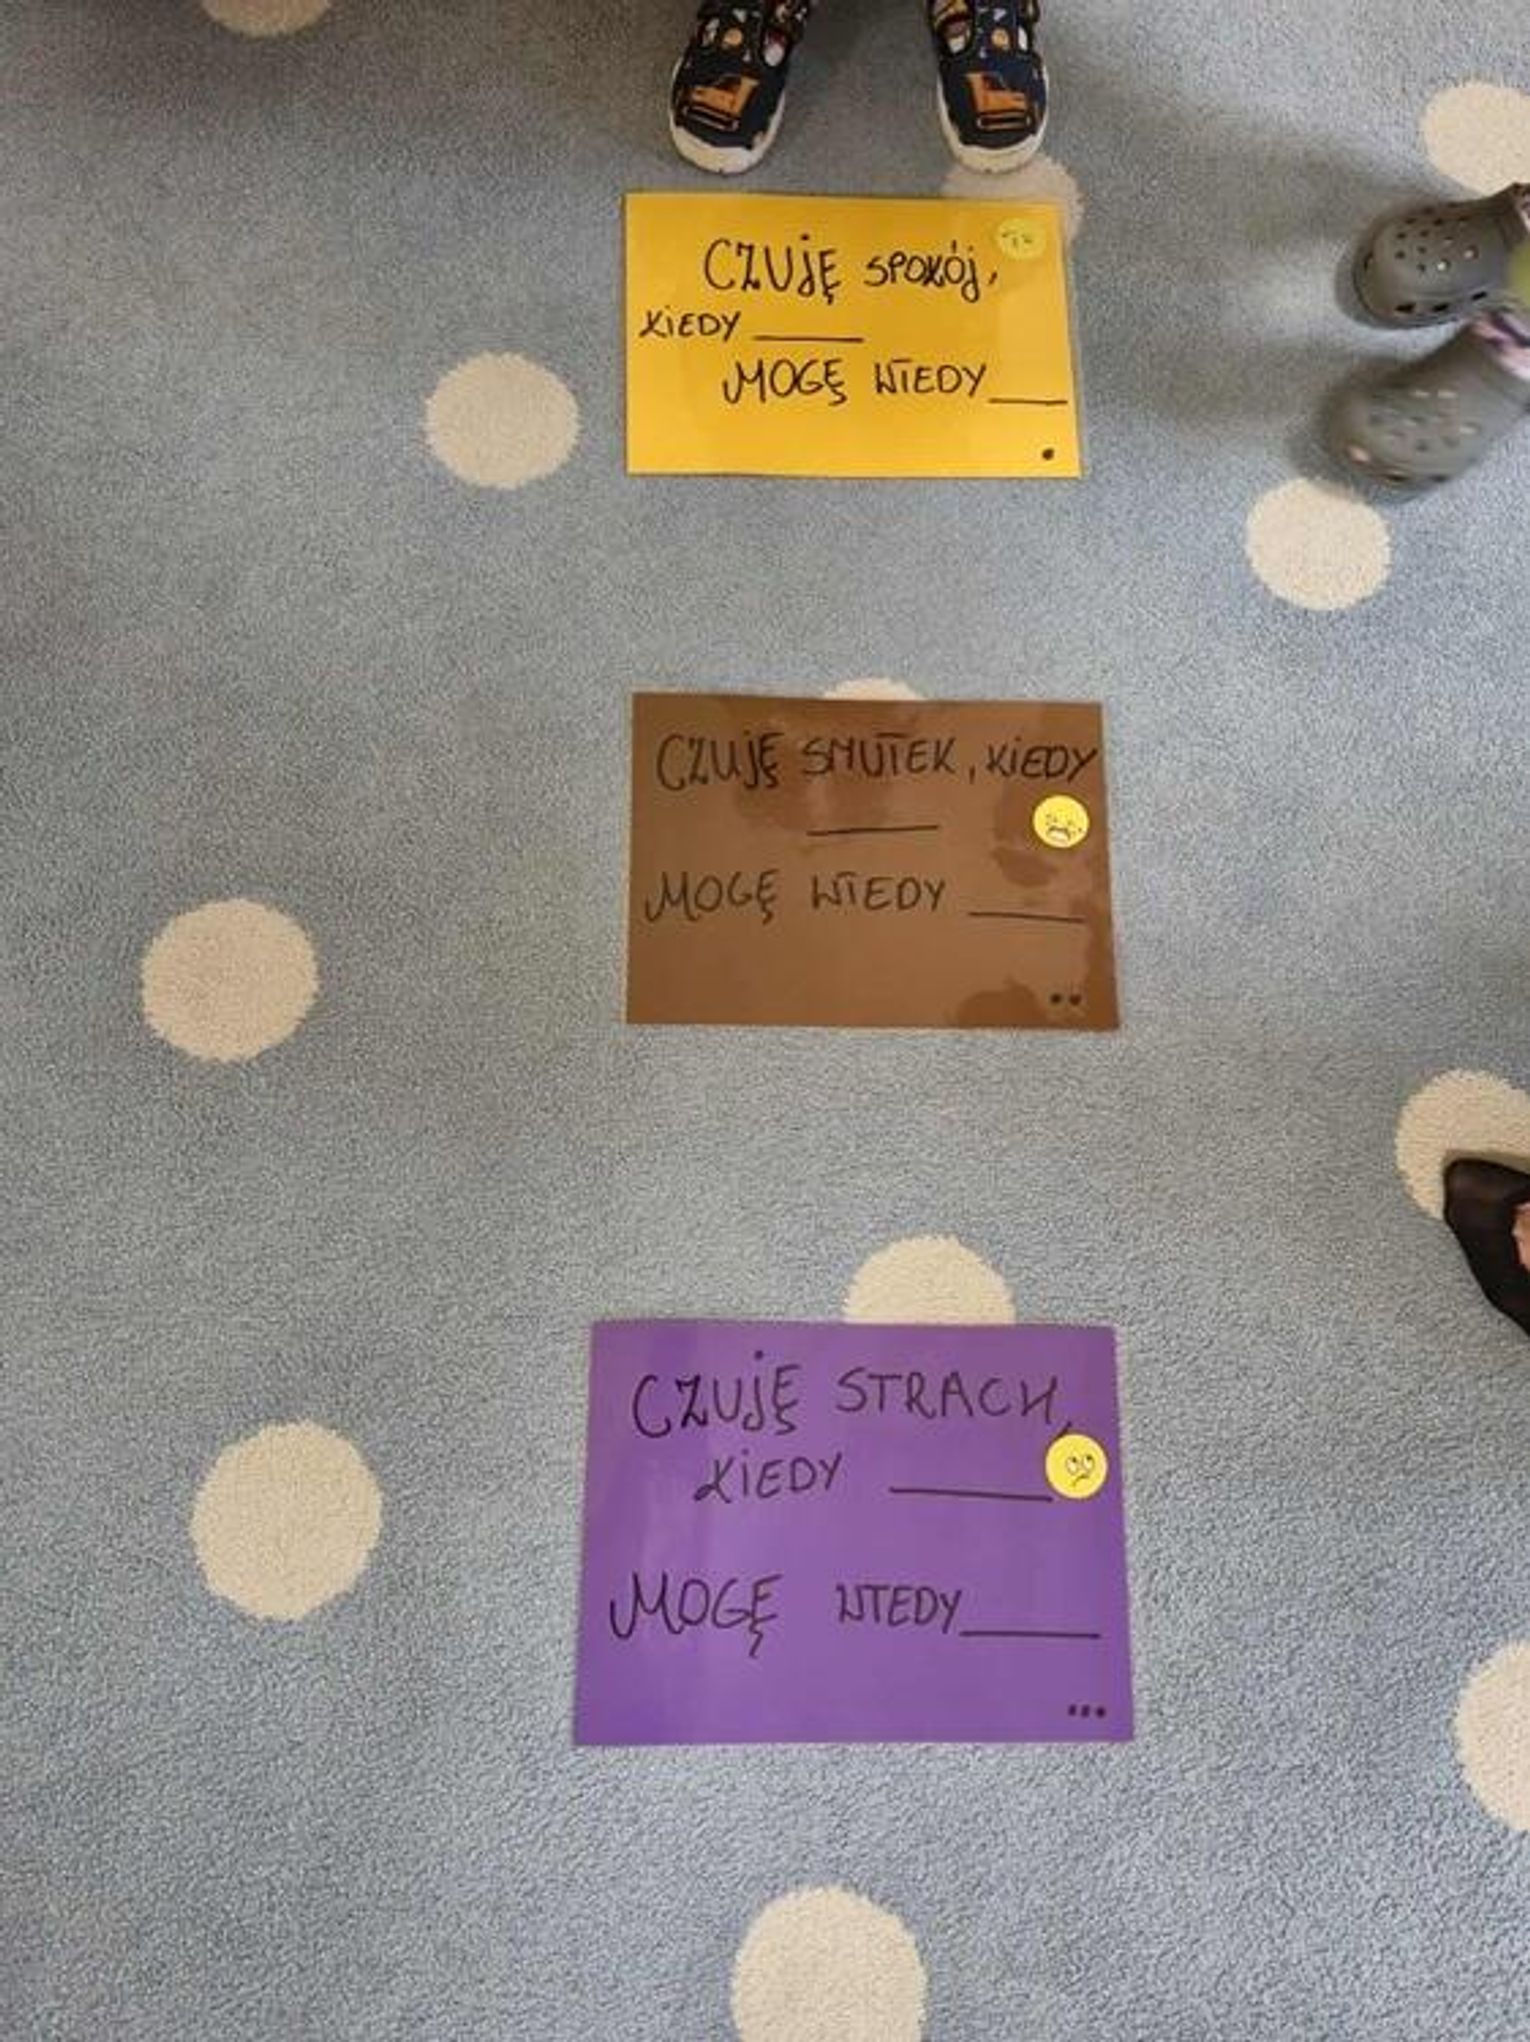 CZUJĘ SPOKÓJ,
KIEDY ______
MOGĘ WTEDY ____
CZUJĘ SMUTEK, KIEDY
______
MOGĘ WTEDY ______
CZUJĘ STRACH,
KIEDY ______
MOGĘ WTEDY ______